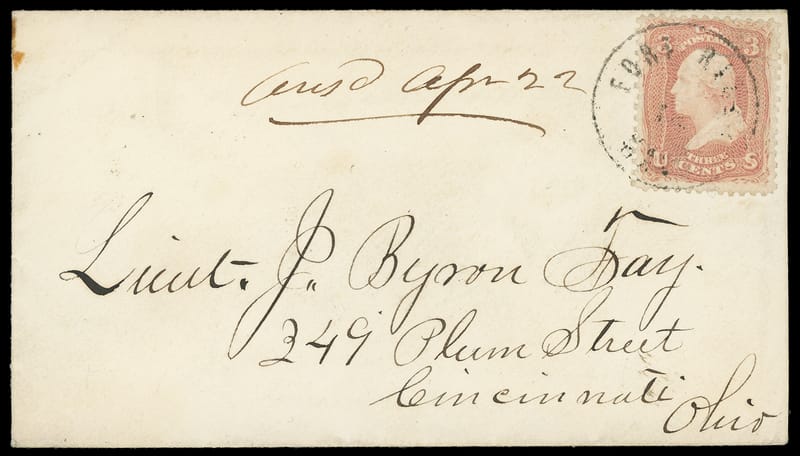 ans'd Apr 22
3
U S
THREE
CENTS
FORT
Lieut. J. Byron Fay.
349 Plum Street
Cincinnati
Ohio